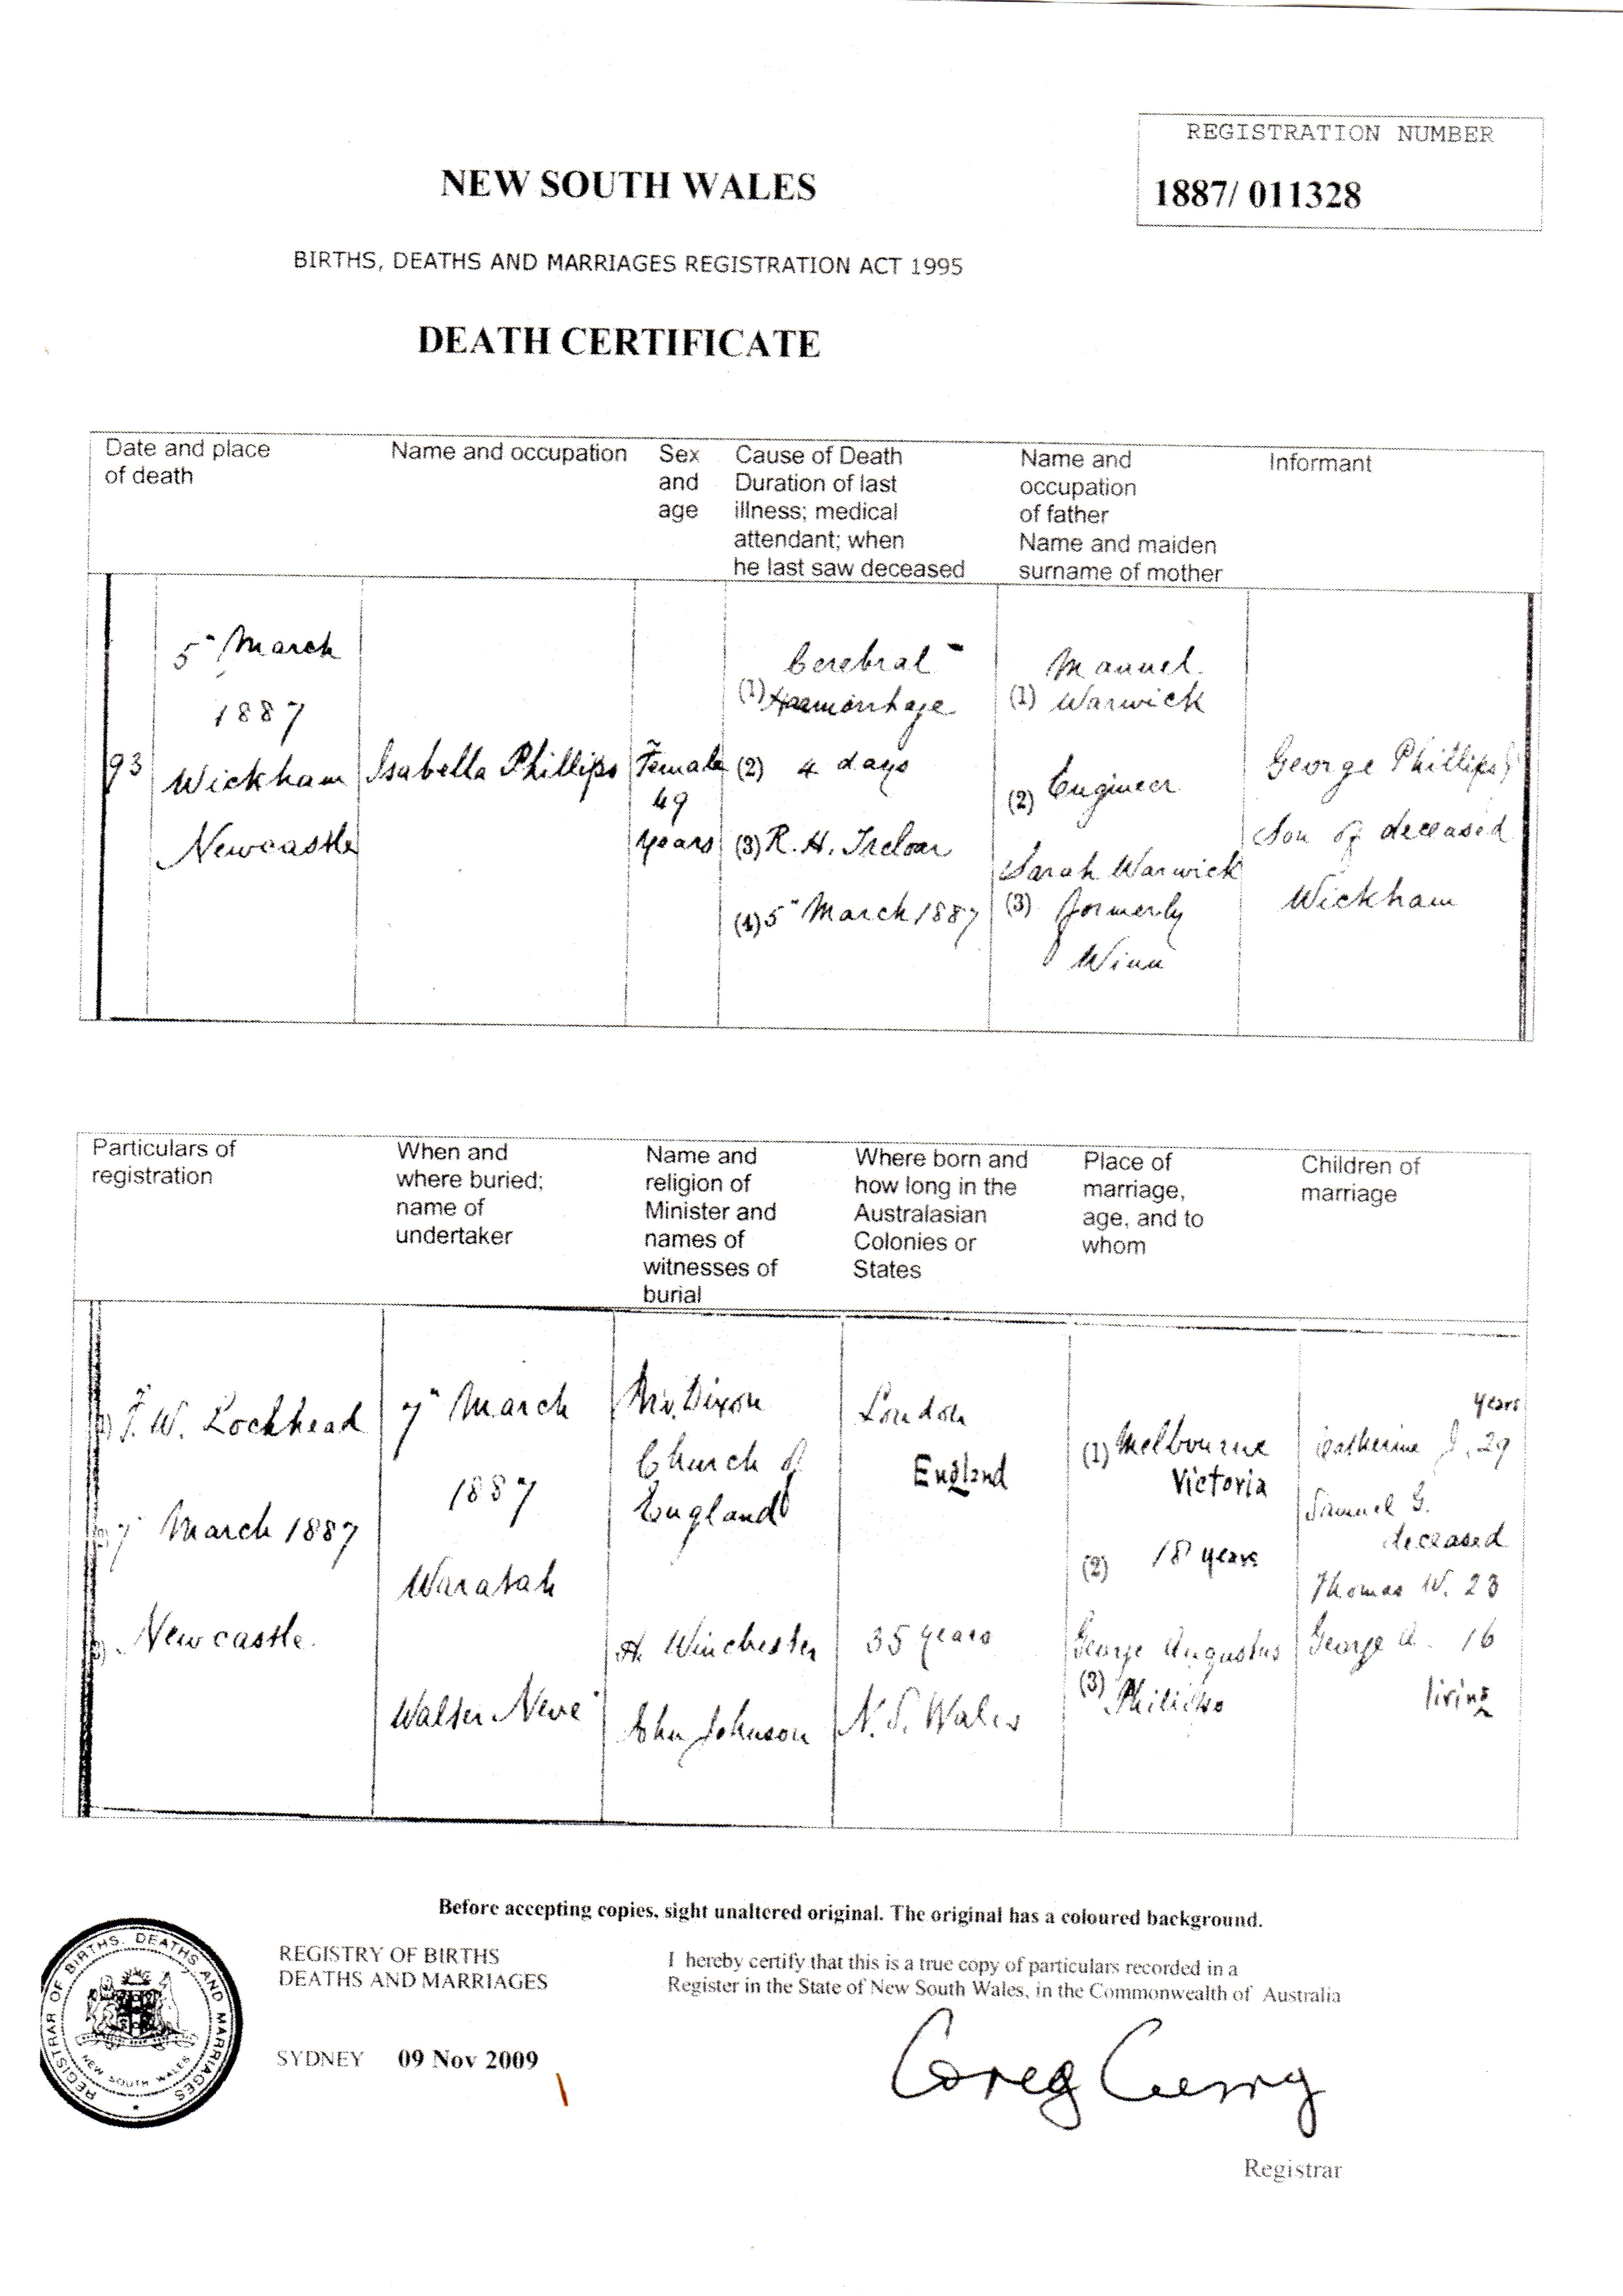 REGISTRATION NUMBER
1887/ 011328
NEW SOUTH WALES
BIRTHS, DEATHS AND MARRIAGES REGISTRATION ACT 1995
DEATH CERTIFICATE
Date and place
of death
Name and occupation
Sex
and
age
Cause of Death
Duration of last
illness; medical
attendant; when
he last saw deceased
Name and
occupation
of father
Name and maiden
surname of mother
Informant
93
5" March
1887
Wickham
Newcastle
Isabella Phillips
Female
49
years
Cerebral
(1) Haemorrhage
(2) 4 days
(3) R. H. Treloar
(4) 5" March 1887
Manuel
(1) Warwick
(2) Engineer
Sarah Warwick
(3) formerly
Winn
George Phillips
Son of deceased
Wickham
Particulars of
registration
When and
where buried;
name of
undertaker
Name and
religion of
Minister and
names of
witnesses of
burial
Where born and
how long in the
Australasian
Colonies or
States
Place of
marriage,
age, and to
whom
Children of
marriage
F. W. Lockhead
7" March 1887
Newcastle.
7" March
1887
Waratah
Walter Neve
Mr. Dixon
Church of
England
H. Winchester
John Johnson
London
England
35 years
N. S. Wales
(1) Melbourne
Victoria
(2) 18 years
George Augustus
(3) Phillips
years
Catherine J. 29
Samuel G.
deceased
Thomas W. 23
George A. 16
living
Before accepting copies, sight unaltered original. The original has a coloured background.
REGISTRY OF BIRTHS
DEATHS AND MARRIAGES
I hereby certify that this is a true copy of particulars recorded in a
Register in the State of New South Wales, in the Commonwealth of Australia
SYDNEY 09 Nov 2009
REGISTRAR OF BIRTHS, DEATHS AND MARRIAGES
NEW SOUTH WALES
Greg Curry
Registrar